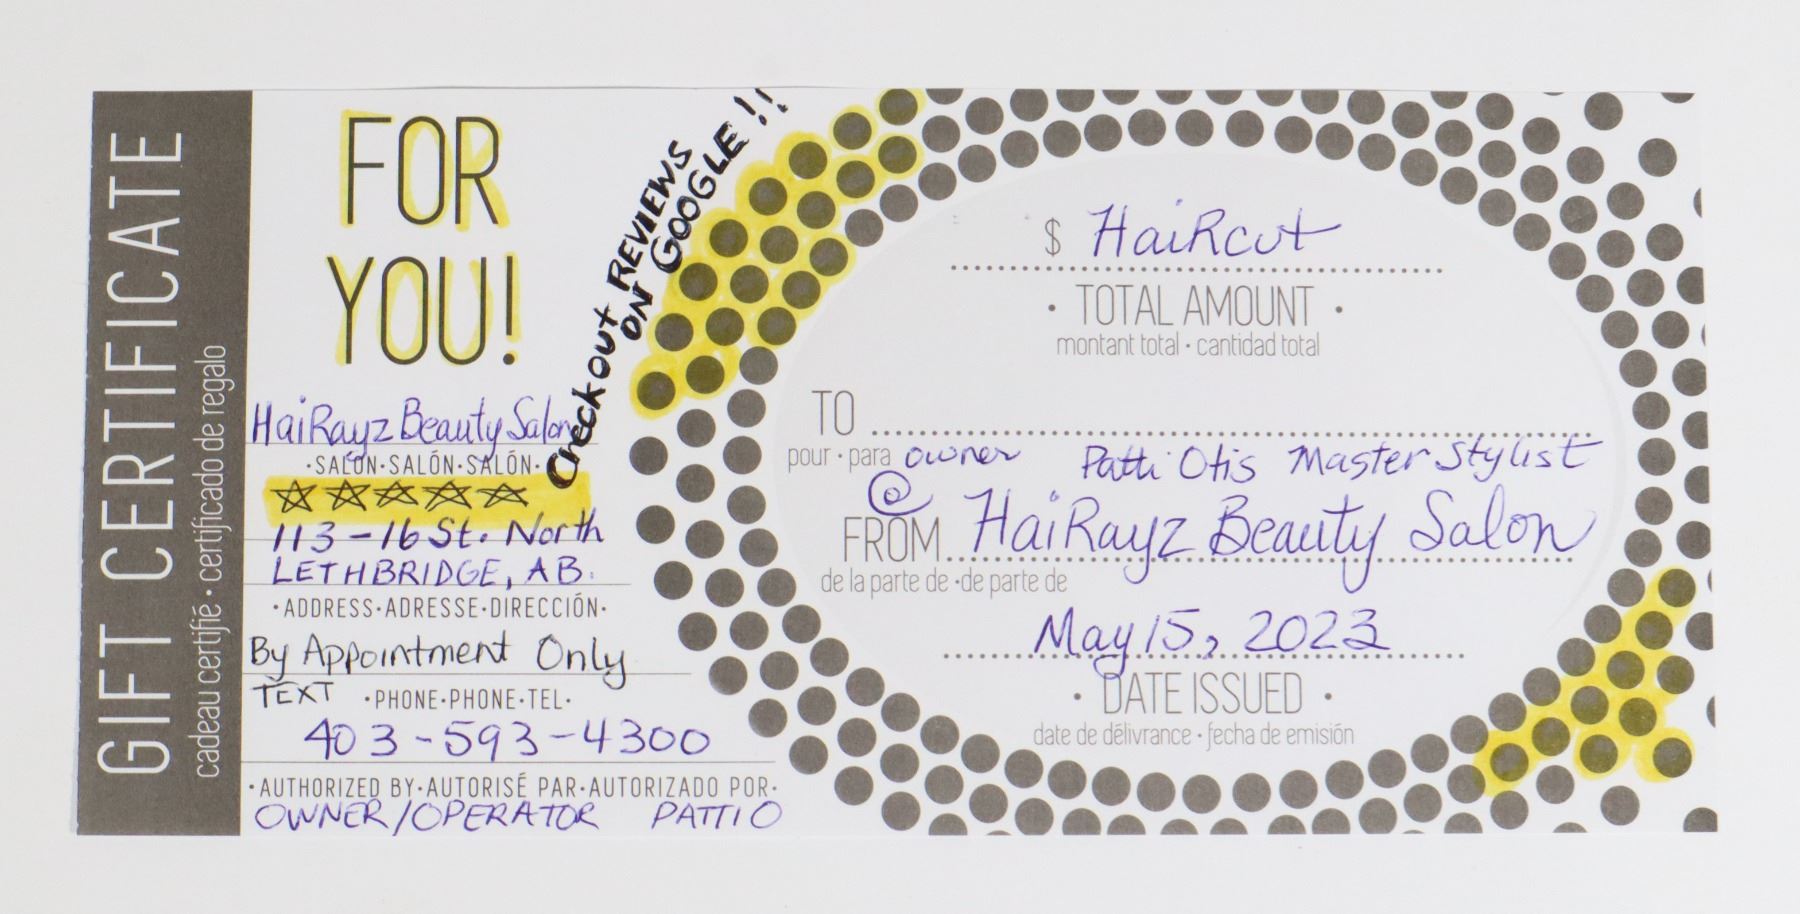 GIFT CERTIFICATE
cadeau certifié • certificado de regalo
FOR
YOU!
Checkout REVIEWS
ON GOOGLE!!
HaiRayz Beauty Salon
•SALON•SALÓN•SALÓN•
113-16 St. North
LETHBRIDGE, AB.
•ADDRESS•ADRESSE•DIRECCIÓN•
By Appointment Only
TEXT •PHONE•PHONE•TEL•
403-593-4300
•AUTHORIZED BY•AUTORISÉ PAR•AUTORIZADO POR•
OWNER/OPERATOR PATTI O
$ HaiRcut
• TOTAL AMOUNT •
montant total • cantidad total
TO
pour • para owner Patti Otis Master Stylist
@
FROM HaiRayz Beauty Salon
de la parte de •de parte de
May 15, 2023
• DATE ISSUED •
date de délivrance • fecha de emisión